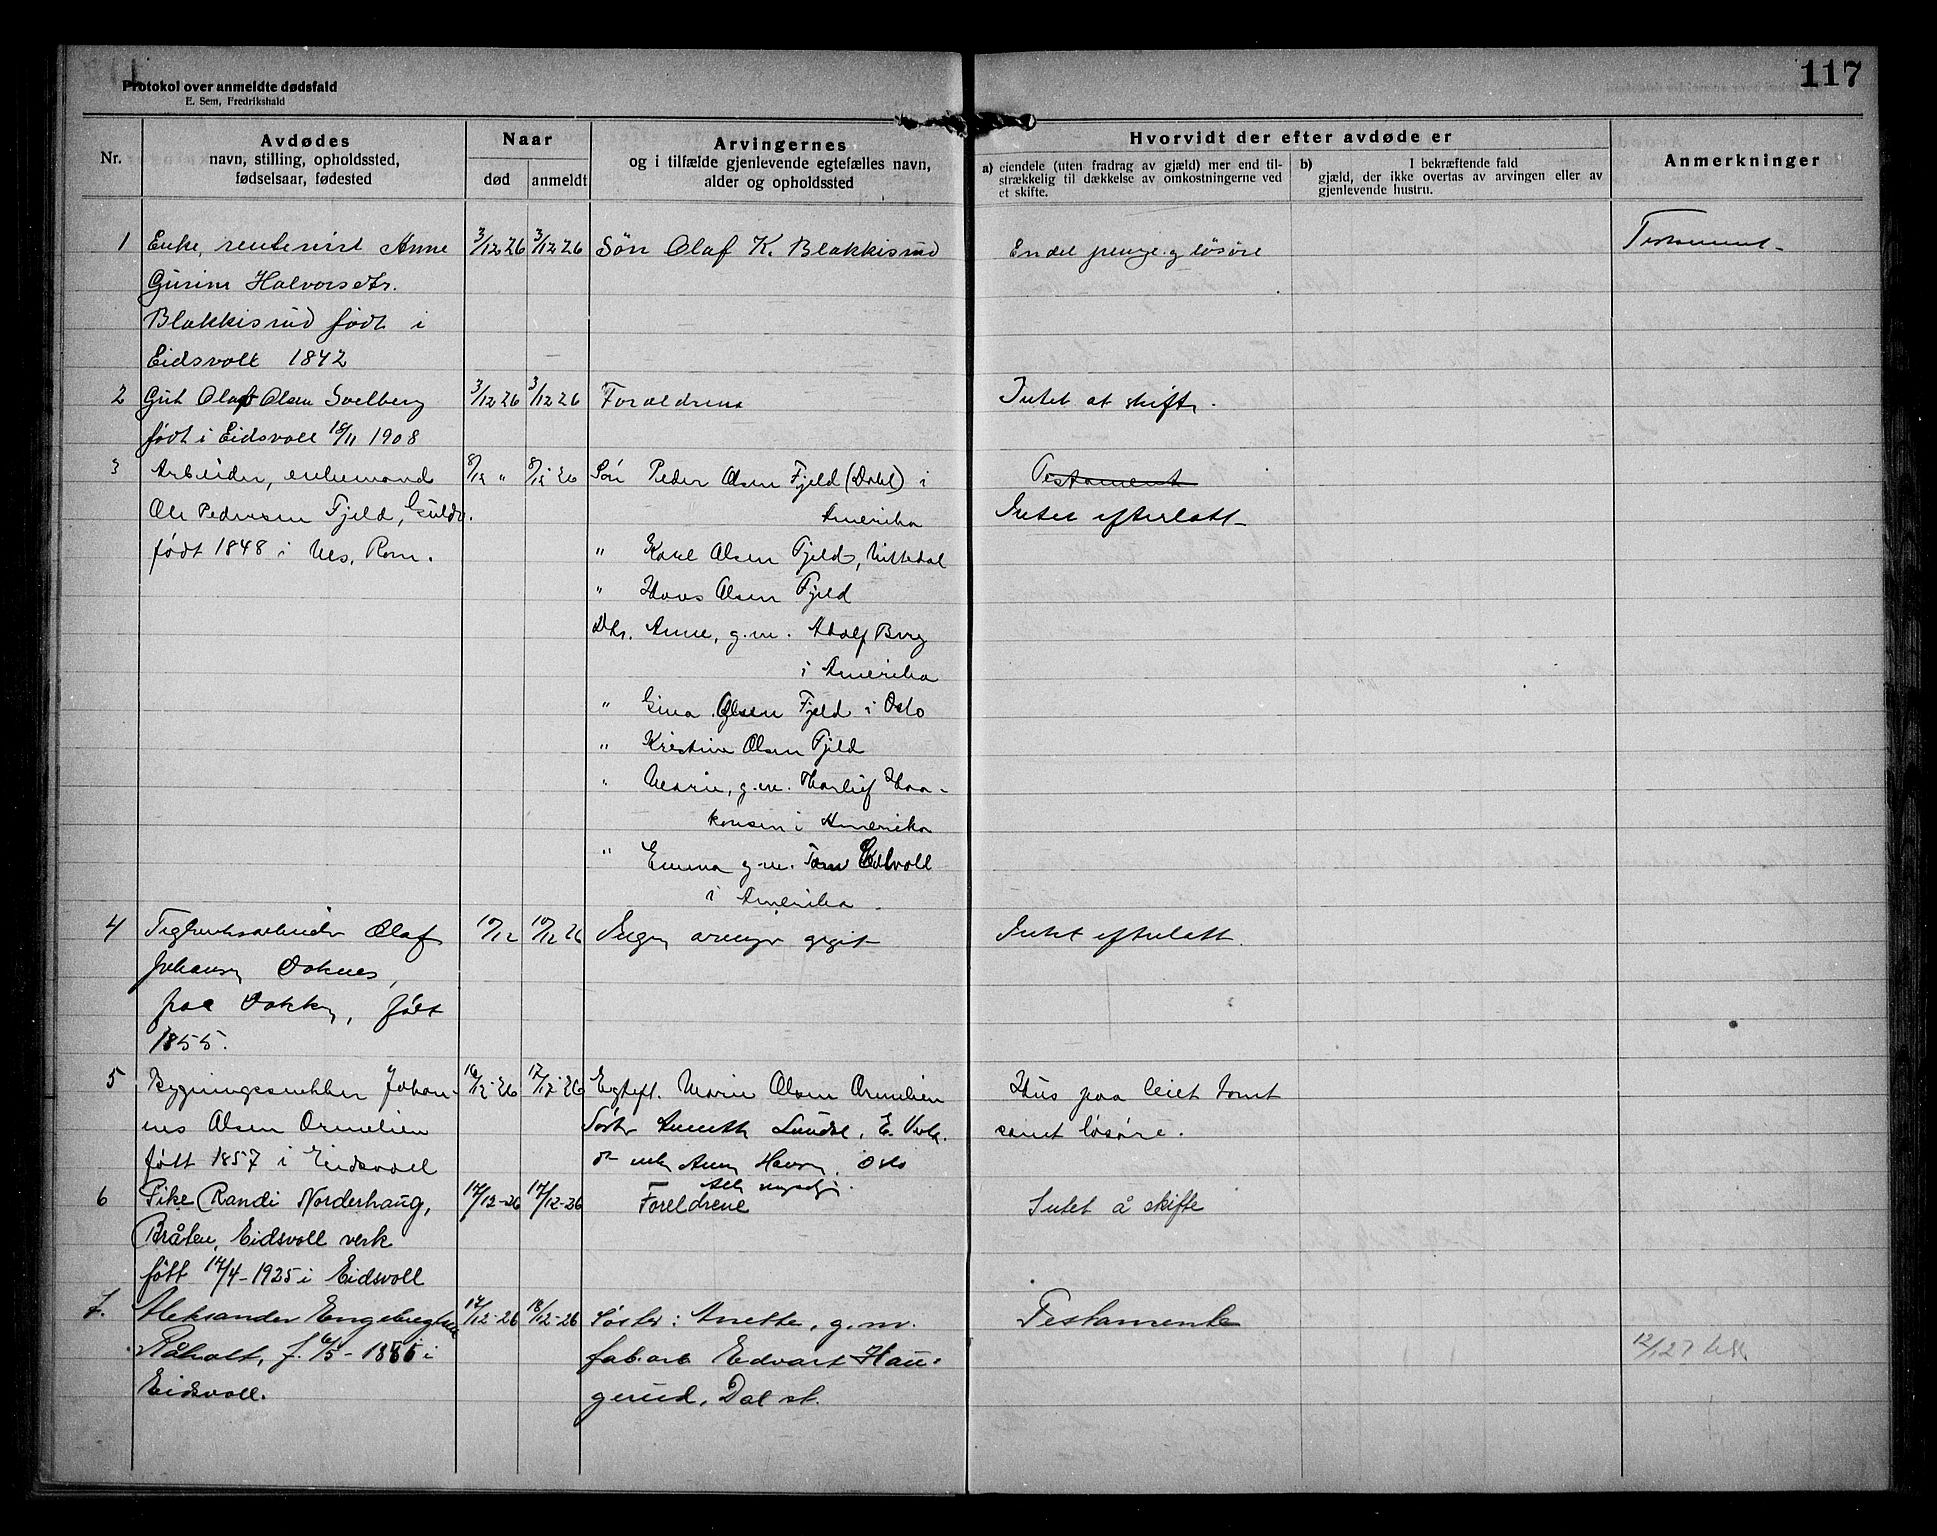 Protokol over anmeldte dødsfald
E. Sem, Fredrikshald
117
Nr.
Avdødes
navn, stilling, opholdssted,
fødselsaar, fødested
Naar
død
anmeldt
Arvingernes
og i tilfælde gjenlevende egtefælles navn,
alder og opholdssted
Hvorvidt der efter avdøde er
a) eiendele (uten fradrag av gjæld) mer end til-
strækkelig til dækkelse av omkostningerne ved
et skifte.
b) I bekræftende fald
gjæld, der ikke overtas av arvingen eller av
gjenlevende hustru.
Anmerkninger
1 Enke, rentenist Anne 3/12 26 3/12 26 Søn Olaf K. Blakkisrud En del penge og løsøre Testament
Gurine Halvorsdtr.
Blakkisrud født i
Eidsvoll 1842
2 Gut Olaf Olsen Solberg 3/12 26 3/12 26 Foreldrene Intet at skifte.
født i Eidsvoll 16/11 1908
3 Arbeider, enkemand 8/12 " 8/12 26 Søn Peder Olsen Fjeld (Dahl) i Testament
Amerika
Ole Pedersen Fjeld, Guldv. Intet efterlatt
født 1848 i Nes, Rom. " Karl Olsen Fjeld, Nittedal
" Hans Olsen Fjeld
Dtr. Anne, g.m. Adolf Berg
i Amerika
" Gina Olsen Fjeld i Oslo
" Kristine Olsen Fjeld
" Marie, g.m. Thorleif Haa-
konsen i Amerika
" Emma g.m. Tom
i Amerika
4 Teglverksarbeider Olaf 10/12 10/12 26 Ingen arvinger opgit Intet efterlatt.
Johansen Doknes,
paa Dokken, født
1855.
5 Bygningssnekker Johan- 16/12-26 17/12-26 Egtef. Marie Olsen Ormelien Hus paa leiet tomt
nes Olsen Ormelien Søster Annette Lundse, E. Verk. samt løsøre.
født 1857 i Eidsvoll Anna Hansen, Oslo
Alle myndige.
6 Pike Randi Norderhaug, 17/12-26 17/12-26 Foreldrene Intet å skifte
Bråten, Eidsvoll verk
født 14/4-1925 i Eidsvoll
7. Aleksander Engebregtsen 17/12-26 18/12-26 Søster: Anette, g.m. Testamente
Råholt, f. 6/5-1885 i fab.arb Edvart Hau-
12/1 27
Eidsvoll. gerud, Dal st.